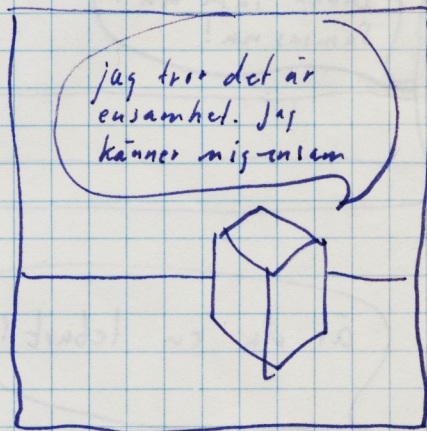 jag tror det är
ensamhet. jag
känner mig ensam